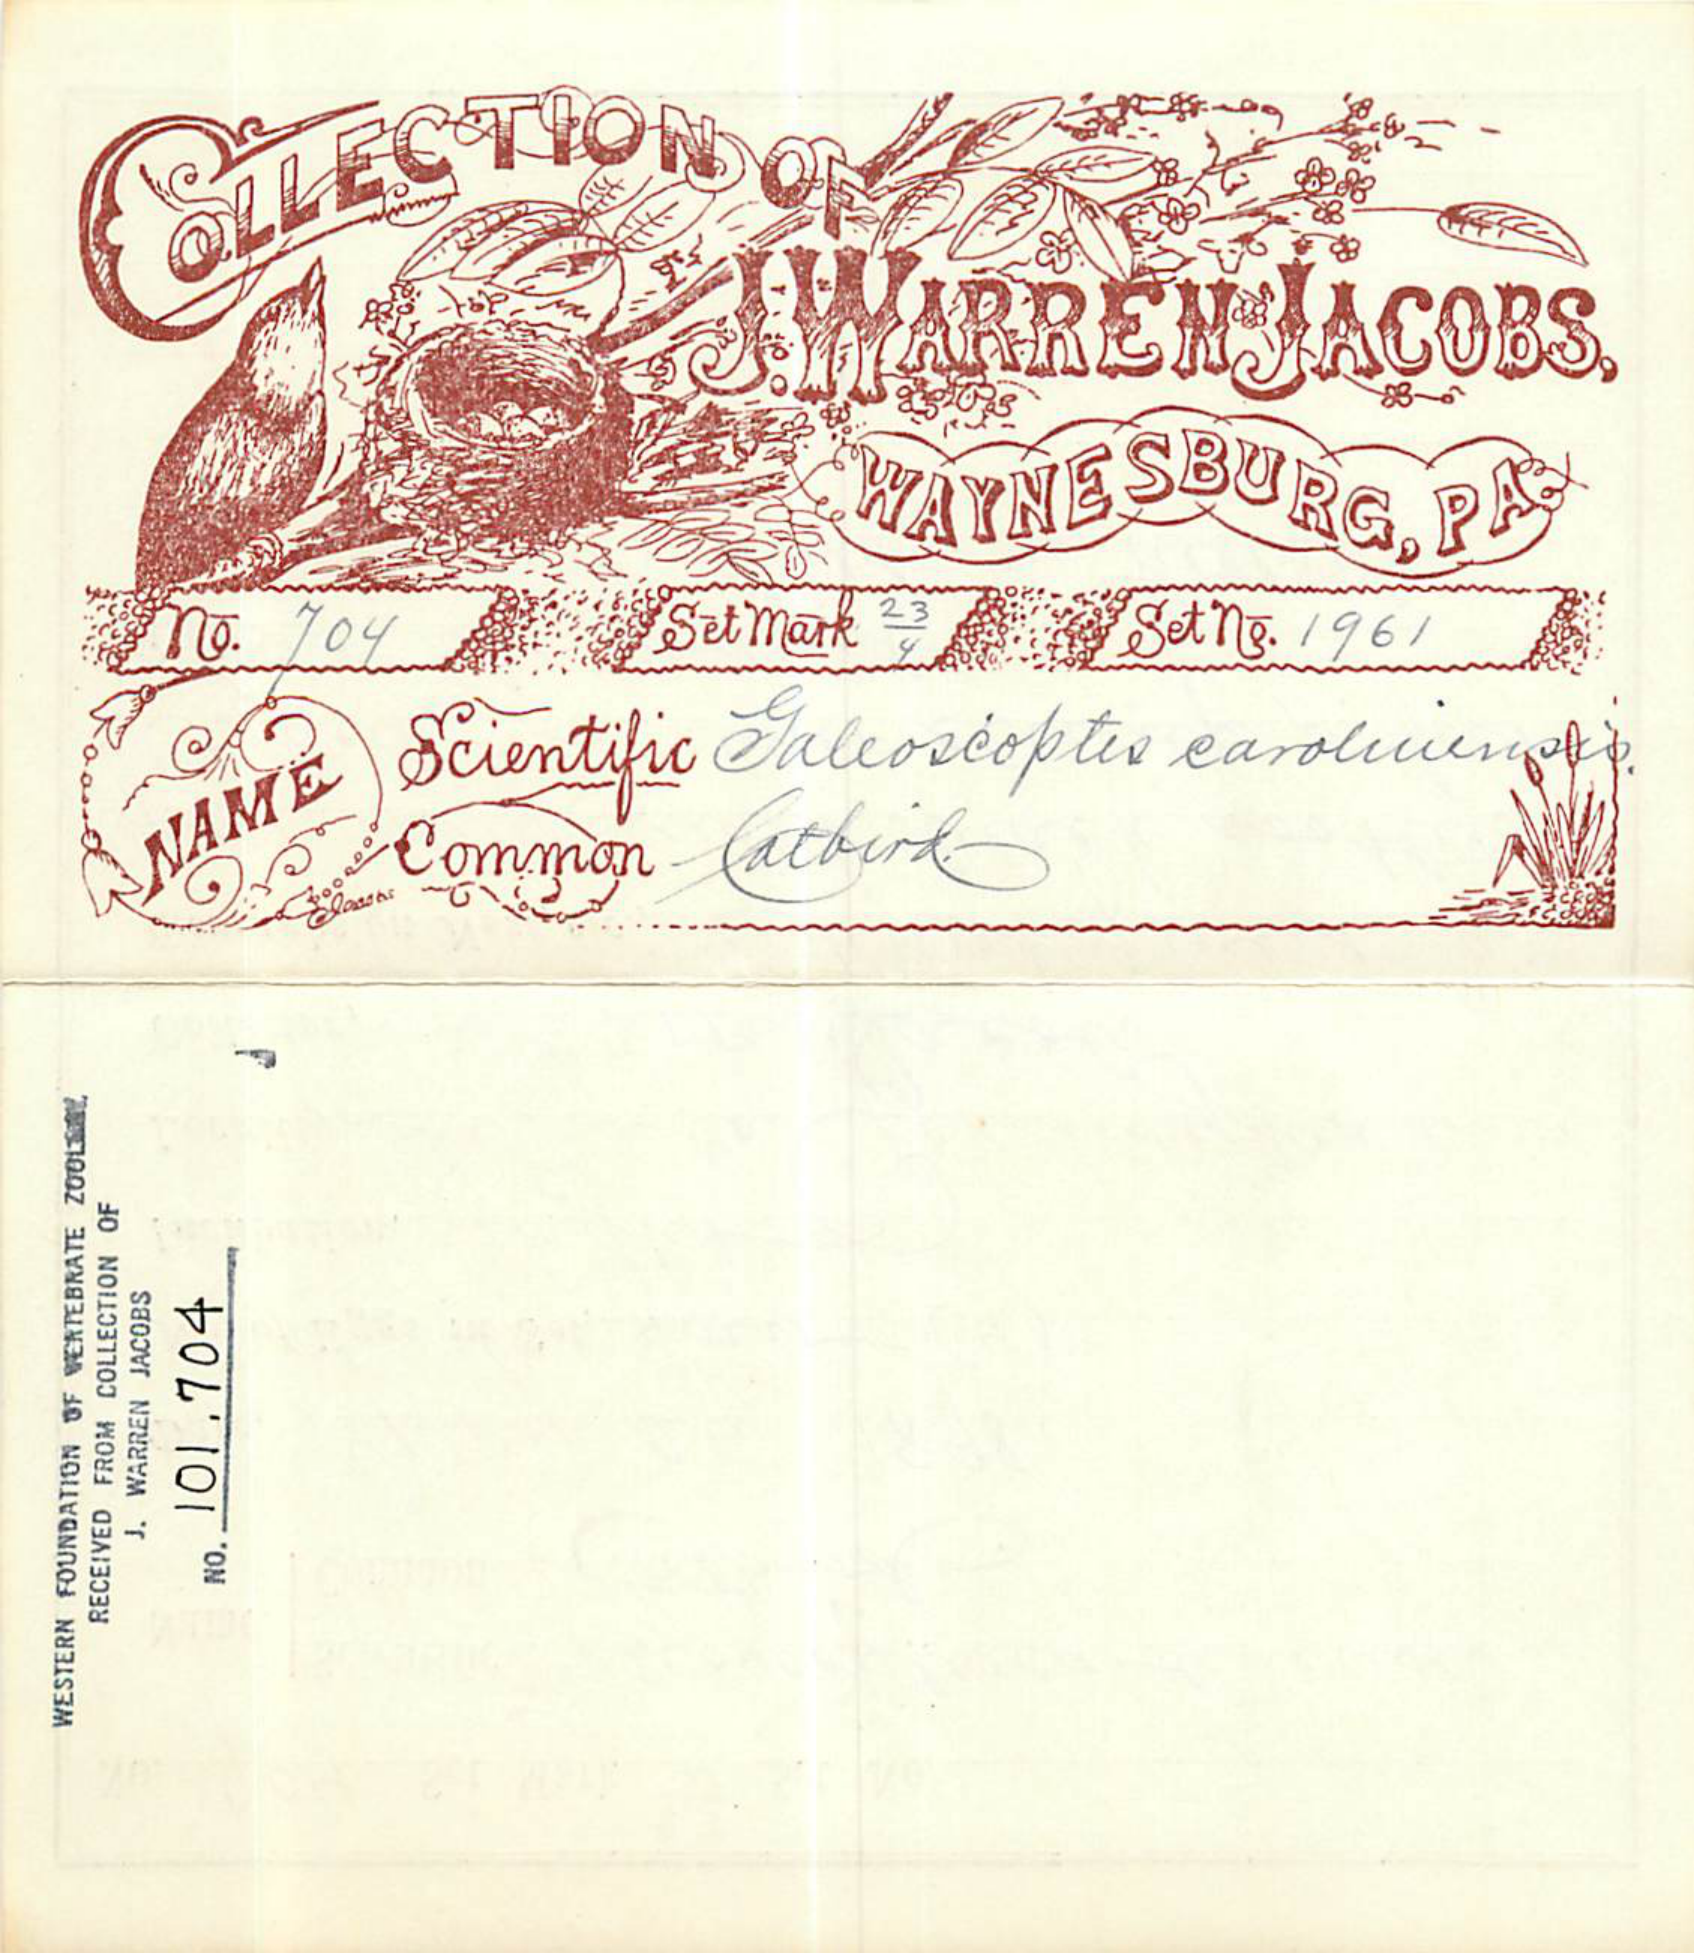 COLLECTION OF
J. WARREN JACOBS,
WAYNESBURG, PA
No. 704 Set Mark 23/4 Set No. 1961
NAME
Scientific Galeoscoptes carolinensis.
Common Catbird
Jacobs
WESTERN FOUNDATION OF VERTEBRATE ZOOLOGY
RECEIVED FROM COLLECTION OF
J. WARREN JACOBS
NO. 101,704